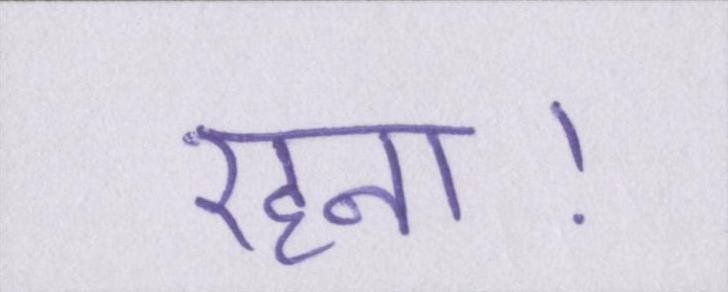 रहना!